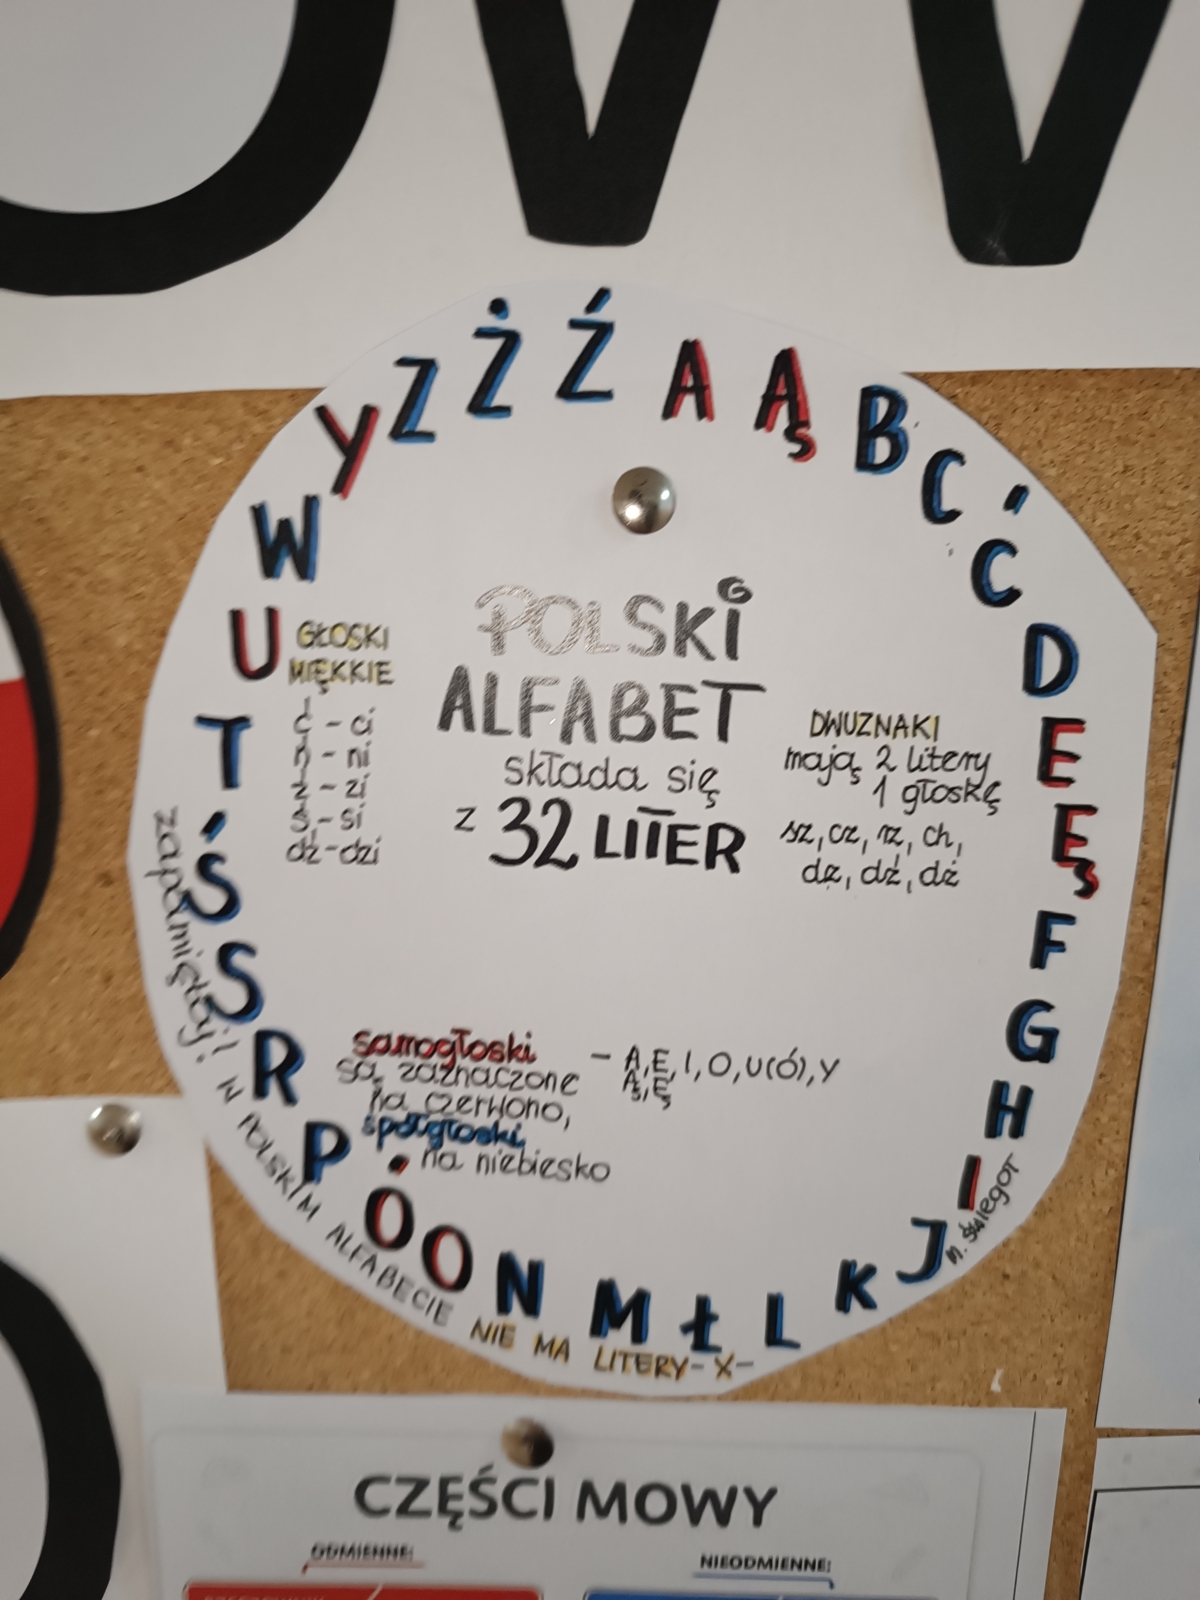 A Ą B C Ć D E Ę F G H I J K L Ł M N O Ó P R S Ś T U W Y Z Ż Ź
POLSKI
ALFABET
składa się
z 32 LITER
GŁOSKI
MIĘKKIE
ć - ci
ń - ni
ź - zi
ś - si
dź - dzi
DWUZNAKI
mają 2 litery
1 głoskę
sz, cz, rz, ch,
dz, dź, dż
samogłoski - A, E, I, O, U(Ó), Y
Ą, Ę
są zaznaczone
na czerwono,
spółgłoski
na niebiesko
zapamiętaj! W POLSKIM ALFABECIE NIE MA LITERY -X-
CZĘŚCI MOWY
ODMIENNE:
NIEODMIENNE: